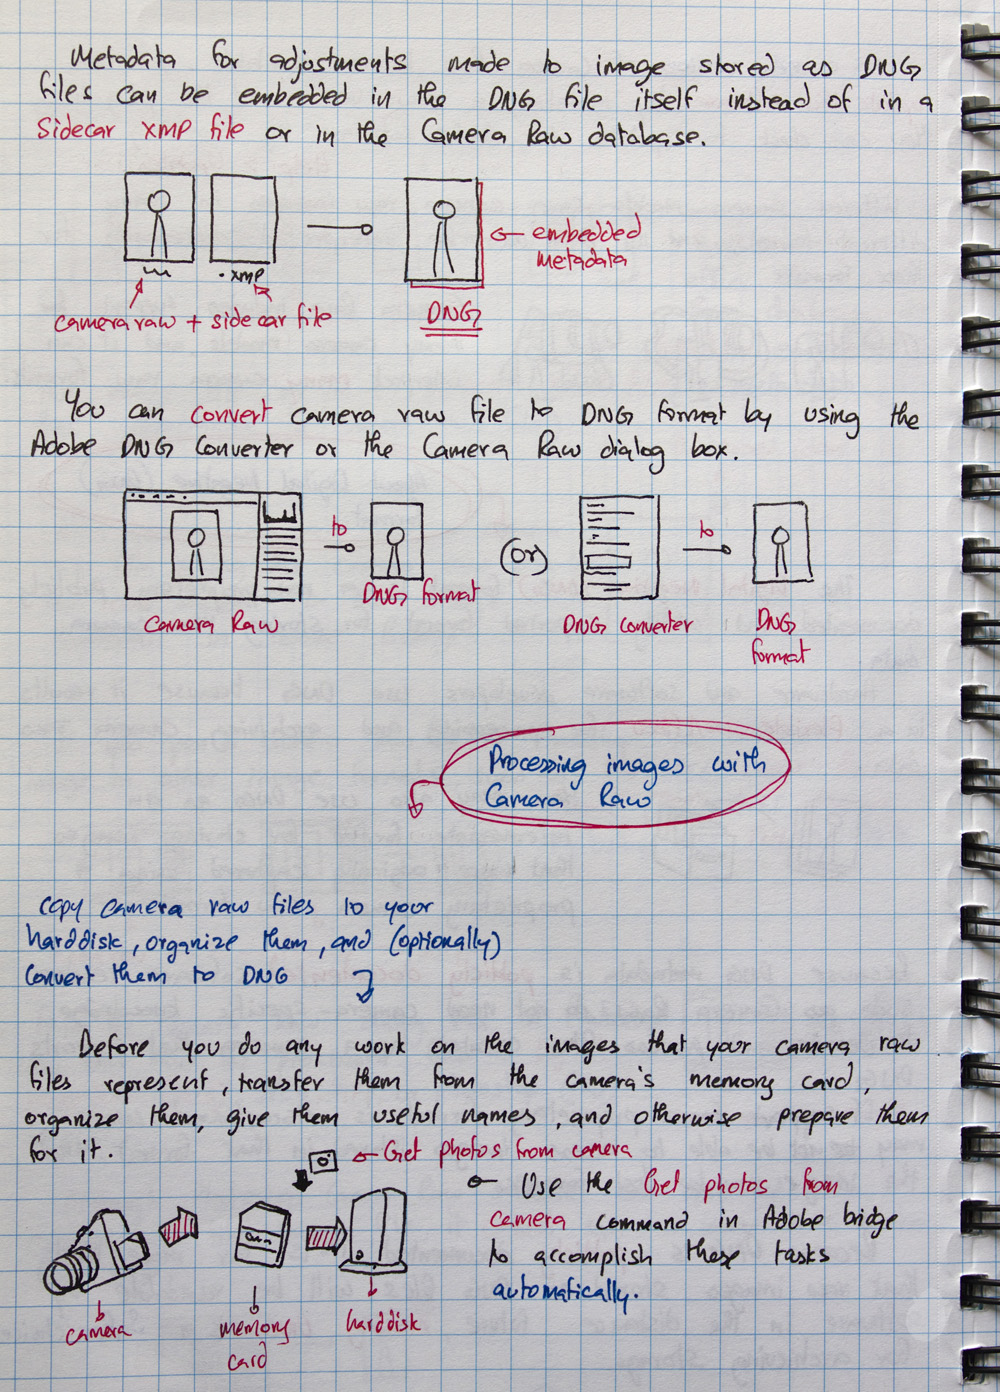 Metadata for adjustments made to image stored as DNG
files can be embedded in the DNG file itself instead of in a
Sidecar xmp file or in the Camera Raw database.
.xmp
← embedded
metadata
camera raw + side car file
DNG
You can convert camera raw file to DNG format by using the
Adobe DNG Converter or the Camera Raw dialog box.
to
(or)
to
DNG format
Camera Raw
DNG converter
DNG
format
Processing images with
Camera Raw
copy camera raw files to your
harddisk, organize them, and (optionally)
convert them to DNG
Before you do any work on the images that your camera raw
files represent, transfer them from the camera's memory card,
organize them, give them useful names, and otherwise prepare them
for it.
← Get photos from camera
Use the Get photos from
camera command in Adobe bridge
to accomplish these tasks
automatically.
camera
memory
card
harddisk